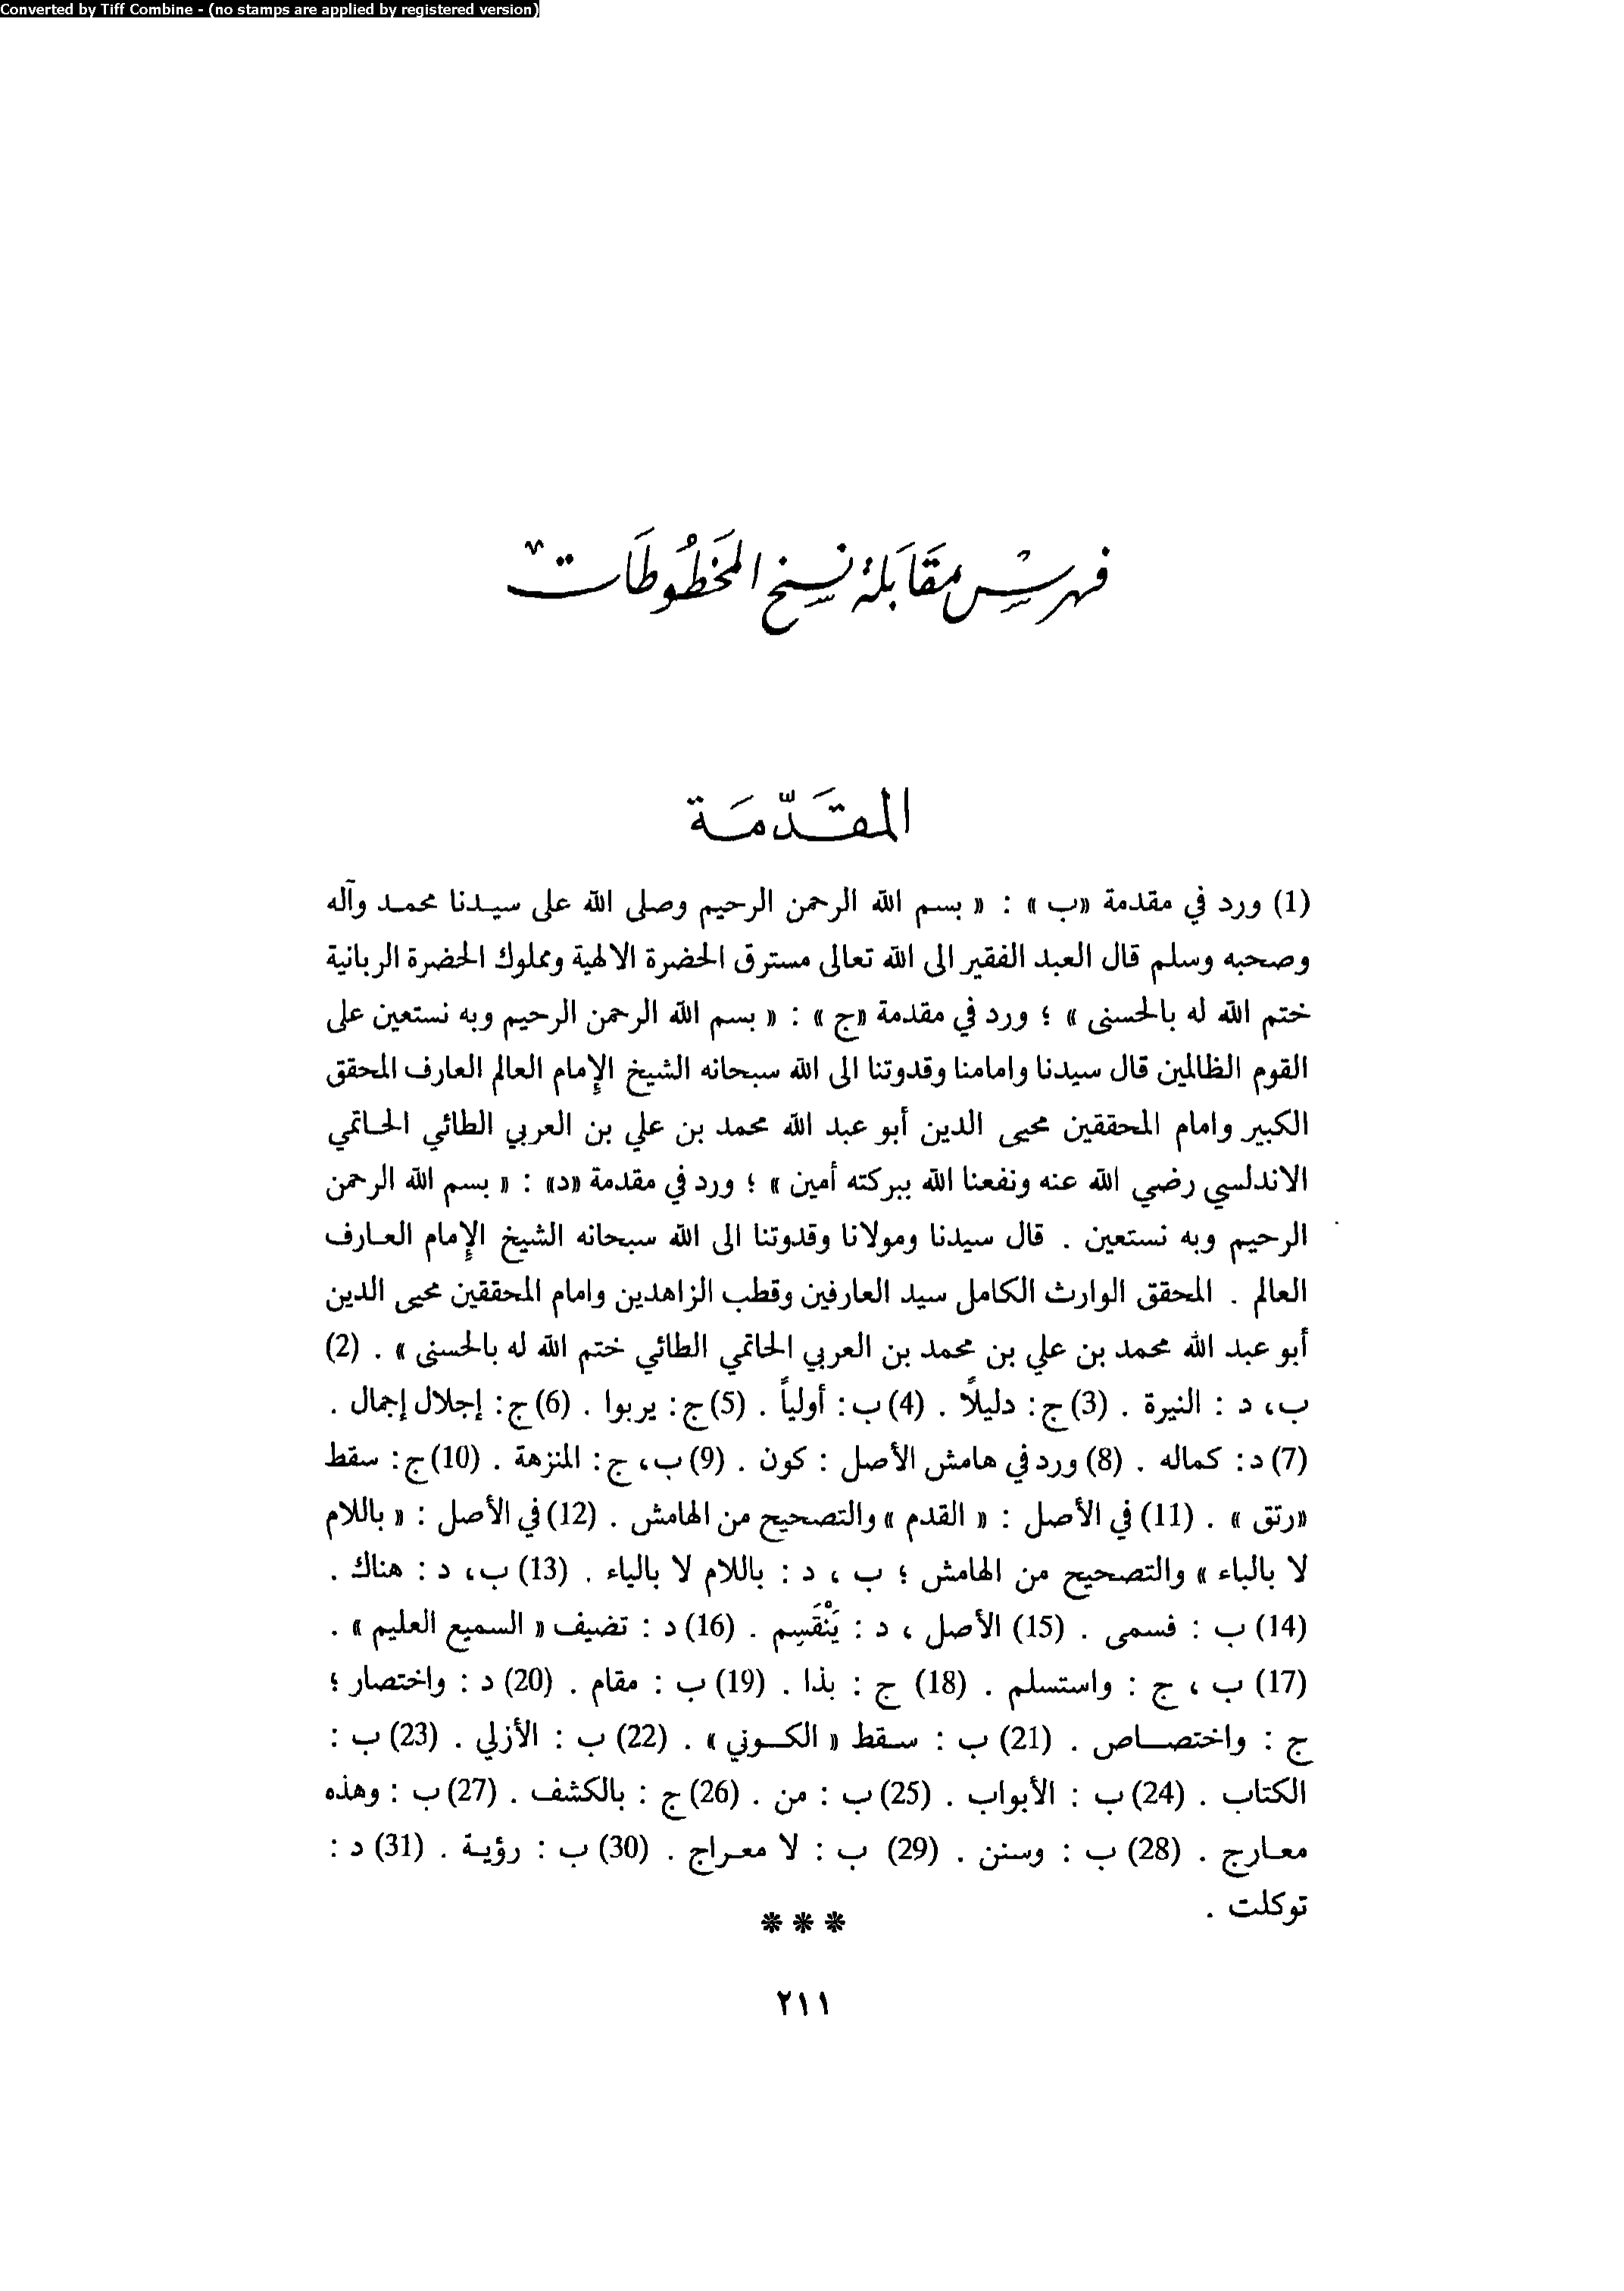 Converted by Tiff Combine - (no stamps are applied by registered version)
فهرس مقابلة نسخ المخطوطات
المقدّمة
(1) ورد في مقدمة «ب» : « بسم الله الرحمن الرحيم وصلى الله على سيدنا محمد وآله
وصحبه وسلم قال العبد الفقير الى الله تعالى مسترق الحضرة الالهية ومملوك الحضرة الربانية
ختم الله له بالحسنى » ؛ ورد في مقدمة «ج» : « بسم الله الرحمن الرحيم وبه نستعين على
القوم الظالمين قال سيدنا وامامنا وقدوتنا الى الله سبحانه الشيخ الإمام العالم العارف المحقق
الكبير وامام المحققين محيى الدين أبو عبد الله محمد بن علي بن العربي الطائي الحاتمي
الاندلسي رضي الله عنه ونفعنا الله ببركته أمين » ؛ ورد في مقدمة «د» : « بسم الله الرحمن
الرحيم وبه نستعين . قال سيدنا ومولانا وقدوتنا الى الله سبحانه الشيخ الإمام العارف
العالم . المحقق الوارث الكامل سيد العارفين وقطب الزاهدين وامام المحققين محيى الدين
أبو عبد الله محمد بن علي بن محمد بن العربي الحاتمي الطائي ختم الله له بالحسنى » . (2)
ب، د : النيرة . (3) ج: دليلاً . (4) ب: أولياً . (5) ج: يربوا . (6) ج: إجلال إجمال .
(7) د: كماله . (8) ورد في هامش الأصل : كون . (9) ب، ج: المنزهة . (10) ج: سقط
«رتق » . (11) في الأصل : « القدم » والتصحيح من الهامش . (12) في الأصل : « باللام
لا بالباء » والتصحيح من الهامش ؛ ب ، د : باللام لا بالياء . (13) ب، د : هناك .
(14) ب : فسمى . (15) الأصل ، د : يَنْقَسِم . (16) د : تضيف « السميع العليم » .
(17) ب ، ج : واستسلم . (18) ج : بذا . (19) ب : مقام . (20) د : واختصار ؛
ج : واختصاص . (21) ب : سقط « الكوني » . (22) ب : الأزلي . (23) ب :
الكتاب . (24) ب : الأبواب . (25) ب : من . (26) ج : بالكشف . (27) ب : وهذه
معارج . (28) ب : وسنن . (29) ب : لا معراج . (30) ب : رؤية . (31) د :
توكلت .
***
٢١١